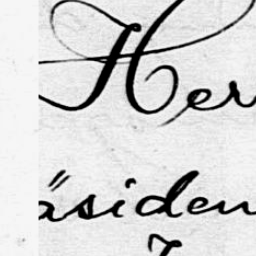 Her
äsiden